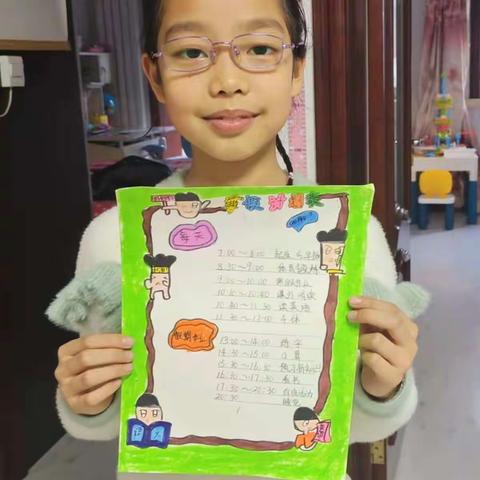 寒假计划表
每天
7:00～8:00 起床 吃早餐
8:30～9:00
9:00～10:00 寒假作业
10:10～10:40 课外阅读
10:40～11:30 读英语
11:30～13:00 午休
假期生活
13:00～14:00 练字
14:30～15:00 口算
15:30～16:30
16:30～17:30 看书
17:30～20:30 自由活动
20:30 睡觉
语文